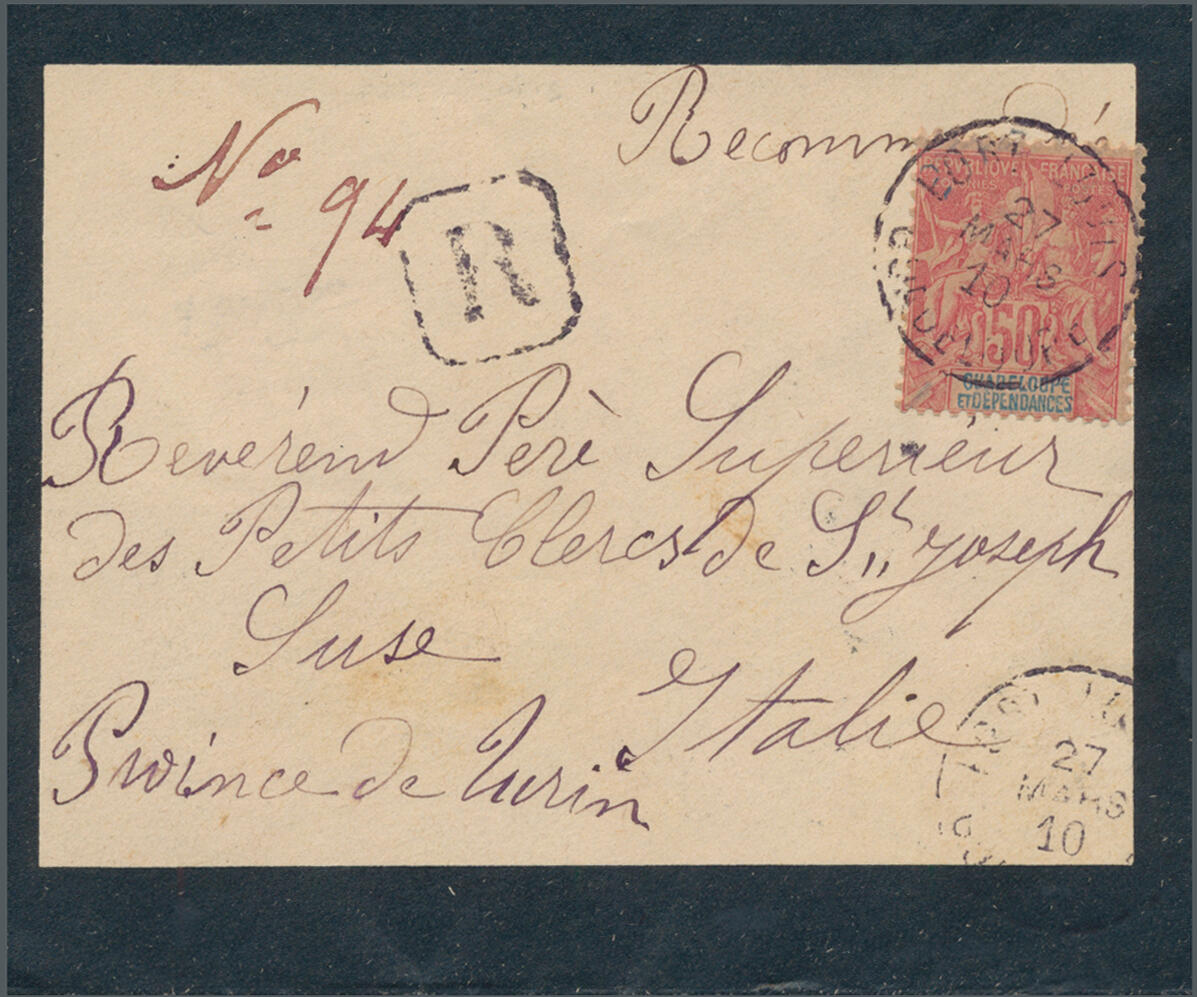 Recommandé
No 94
R
PORT-LOUIS
27
MARS
10
GUADELOUPE
REPUBLIQUE FRANÇAISE
COLONIES POSTES
50
GUADELOUPE
ET DÉPENDANCES
Revérend Père Superieur
des Petits Clercs de St Joseph
Suse
Italie
Province de Turin
27
MARS
10